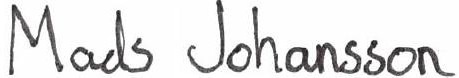 Mads Johansson